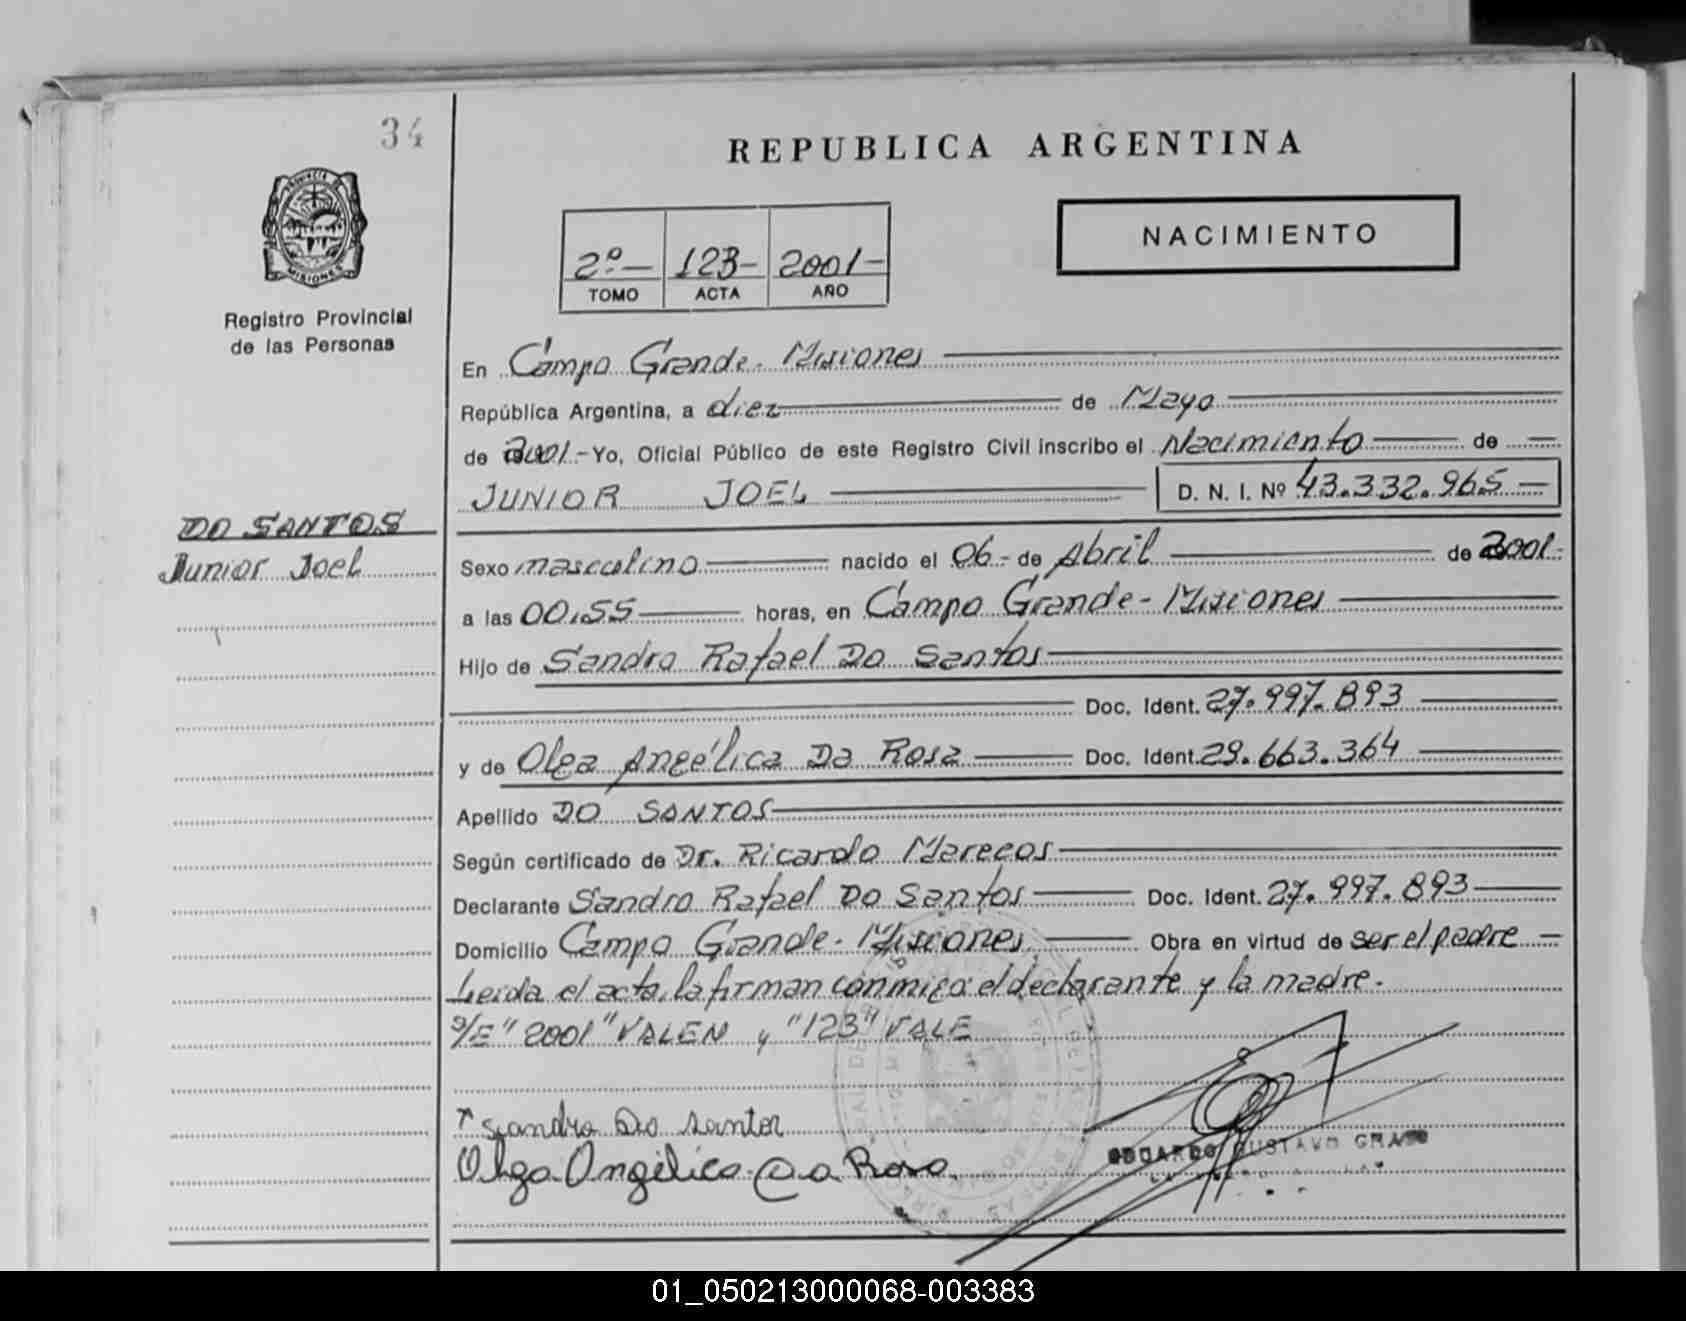 34
REPUBLICA ARGENTINA
PROVINCIA DE
MISIONES
Registro Provincial
de las Personas
2º- 123- 2001-
TOMO ACTA AÑO
NACIMIENTO
En Campo Grande. Misiones
República Argentina, a diez de Mayo
de 2001.- Yo, Oficial Público de este Registro Civil inscribo el Nacimiento de
JUNIOR JOEL D. N. I. Nº 43.332.965
DO SANTOS
Junior Joel
Sexo masculino nacido el 06- de Abril de 2001-
a las 00,55 horas, en Campo Grande - Misiones
Hijo de Sandro Rafael Do Santos
Doc. Ident. 27.997.893
y de Olga Angélica Da Rosa Doc. Ident. 29.663.364
Apellido DO SANTOS
Según certificado de Dr. Ricardo Marecos
Declarante Sandro Rafael Do Santos Doc. Ident. 27.997.893
Domicilio Campo Grande - Misiones Obra en virtud de ser el padre
Leída el acta, la firman conmigo el declarante y la madre.
S/E "2001" VALEN y "123" VALE
Sandro Do Santos
Olga Angélica Da Rosa
EDUARDO GUSTAVO
01_050213000068-003383